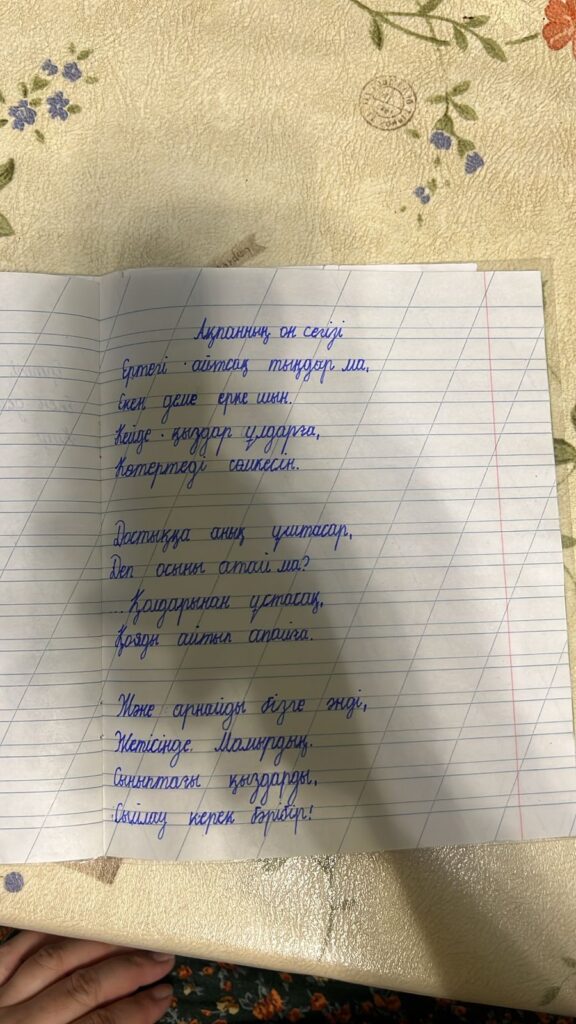 Ақпанның он сегізі
Ертегі айтсақ тыңдар ма,
Екен деме ерке шын.
Кейде қыздар ұлдарға,
Көтертеді сөмкесін.
Достыққа анық ұштасар,
Деп осыны атай ма?
...Қолдарынан ұстасақ,
Қояды айтып апайға.
Және арнайды бізге әнді,
Жетісінде Мамырдың.
Сыныптағы қыздарды,
Сыйлау керек бәрібір!